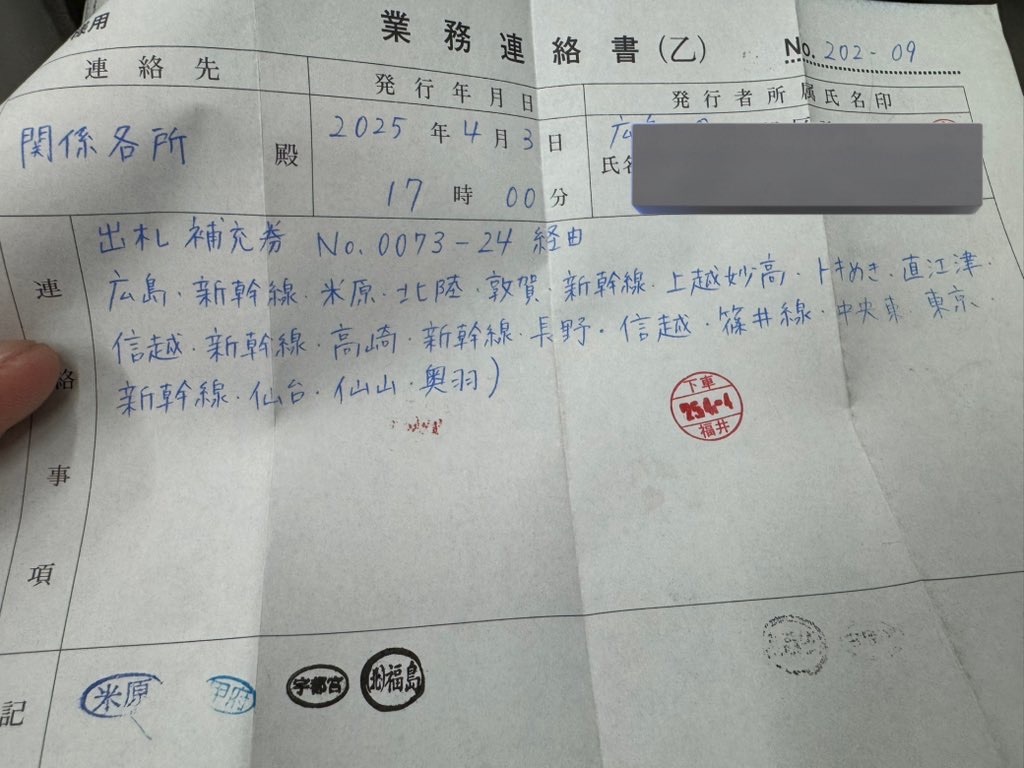 業務連絡書(乙)
No. 202-09
連絡先
発行年月日
発行者所属氏名印
関係各所 殿
2025年4月3日
17時00分
連絡事項
出札補充券 No.0073-24 経由
広島・新幹線・米原・北陸・敦賀・新幹線・上越妙高・トキめき・直江津・
信越・新幹線・高崎・新幹線・長野・信越・篠井線・中央東・東京・
新幹線・仙台・仙山・奥羽)
下車
福井
記
米原
宇都宮
福島